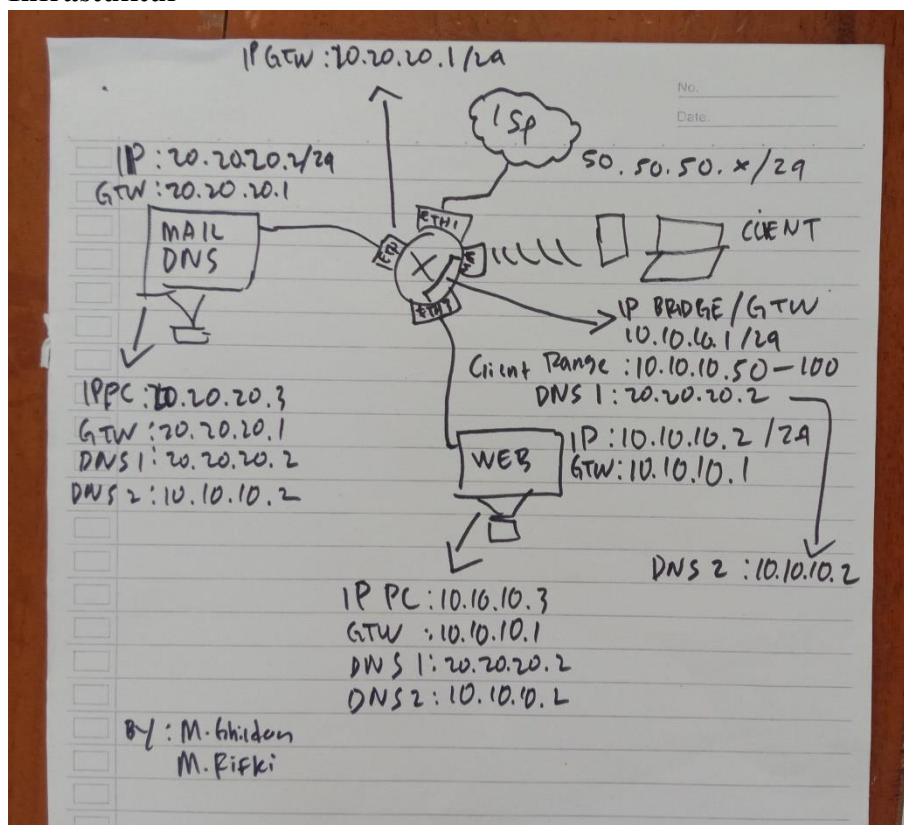 IP GTW : 20.20.20.1/29
No.
Date.
ISP
50.50.50.x/29
IP : 20.20.20.2/29
GTW : 20.20.20.1
MAIL
DNS
ETH1
CLIENT
IP BRIDGE/GTW
10.10.10.1/29
Client Range : 10.10.10.50-100
DNS 1 : 20.20.20.2
IP PC : 20.20.20.3
GTW : 20.20.20.1
DNS 1 : 20.20.20.2
DNS 2 : 10.10.10.2
WEB
IP : 10.10.10.2 /24
GTW : 10.10.10.1
DNS 2 : 10.10.10.2
IP PC : 10.10.10.3
GTW : 10.10.10.1
DNS 1 : 20.20.20.2
DNS 2 : 10.10.10.2
BY : M. Ghildan
M. Rifki